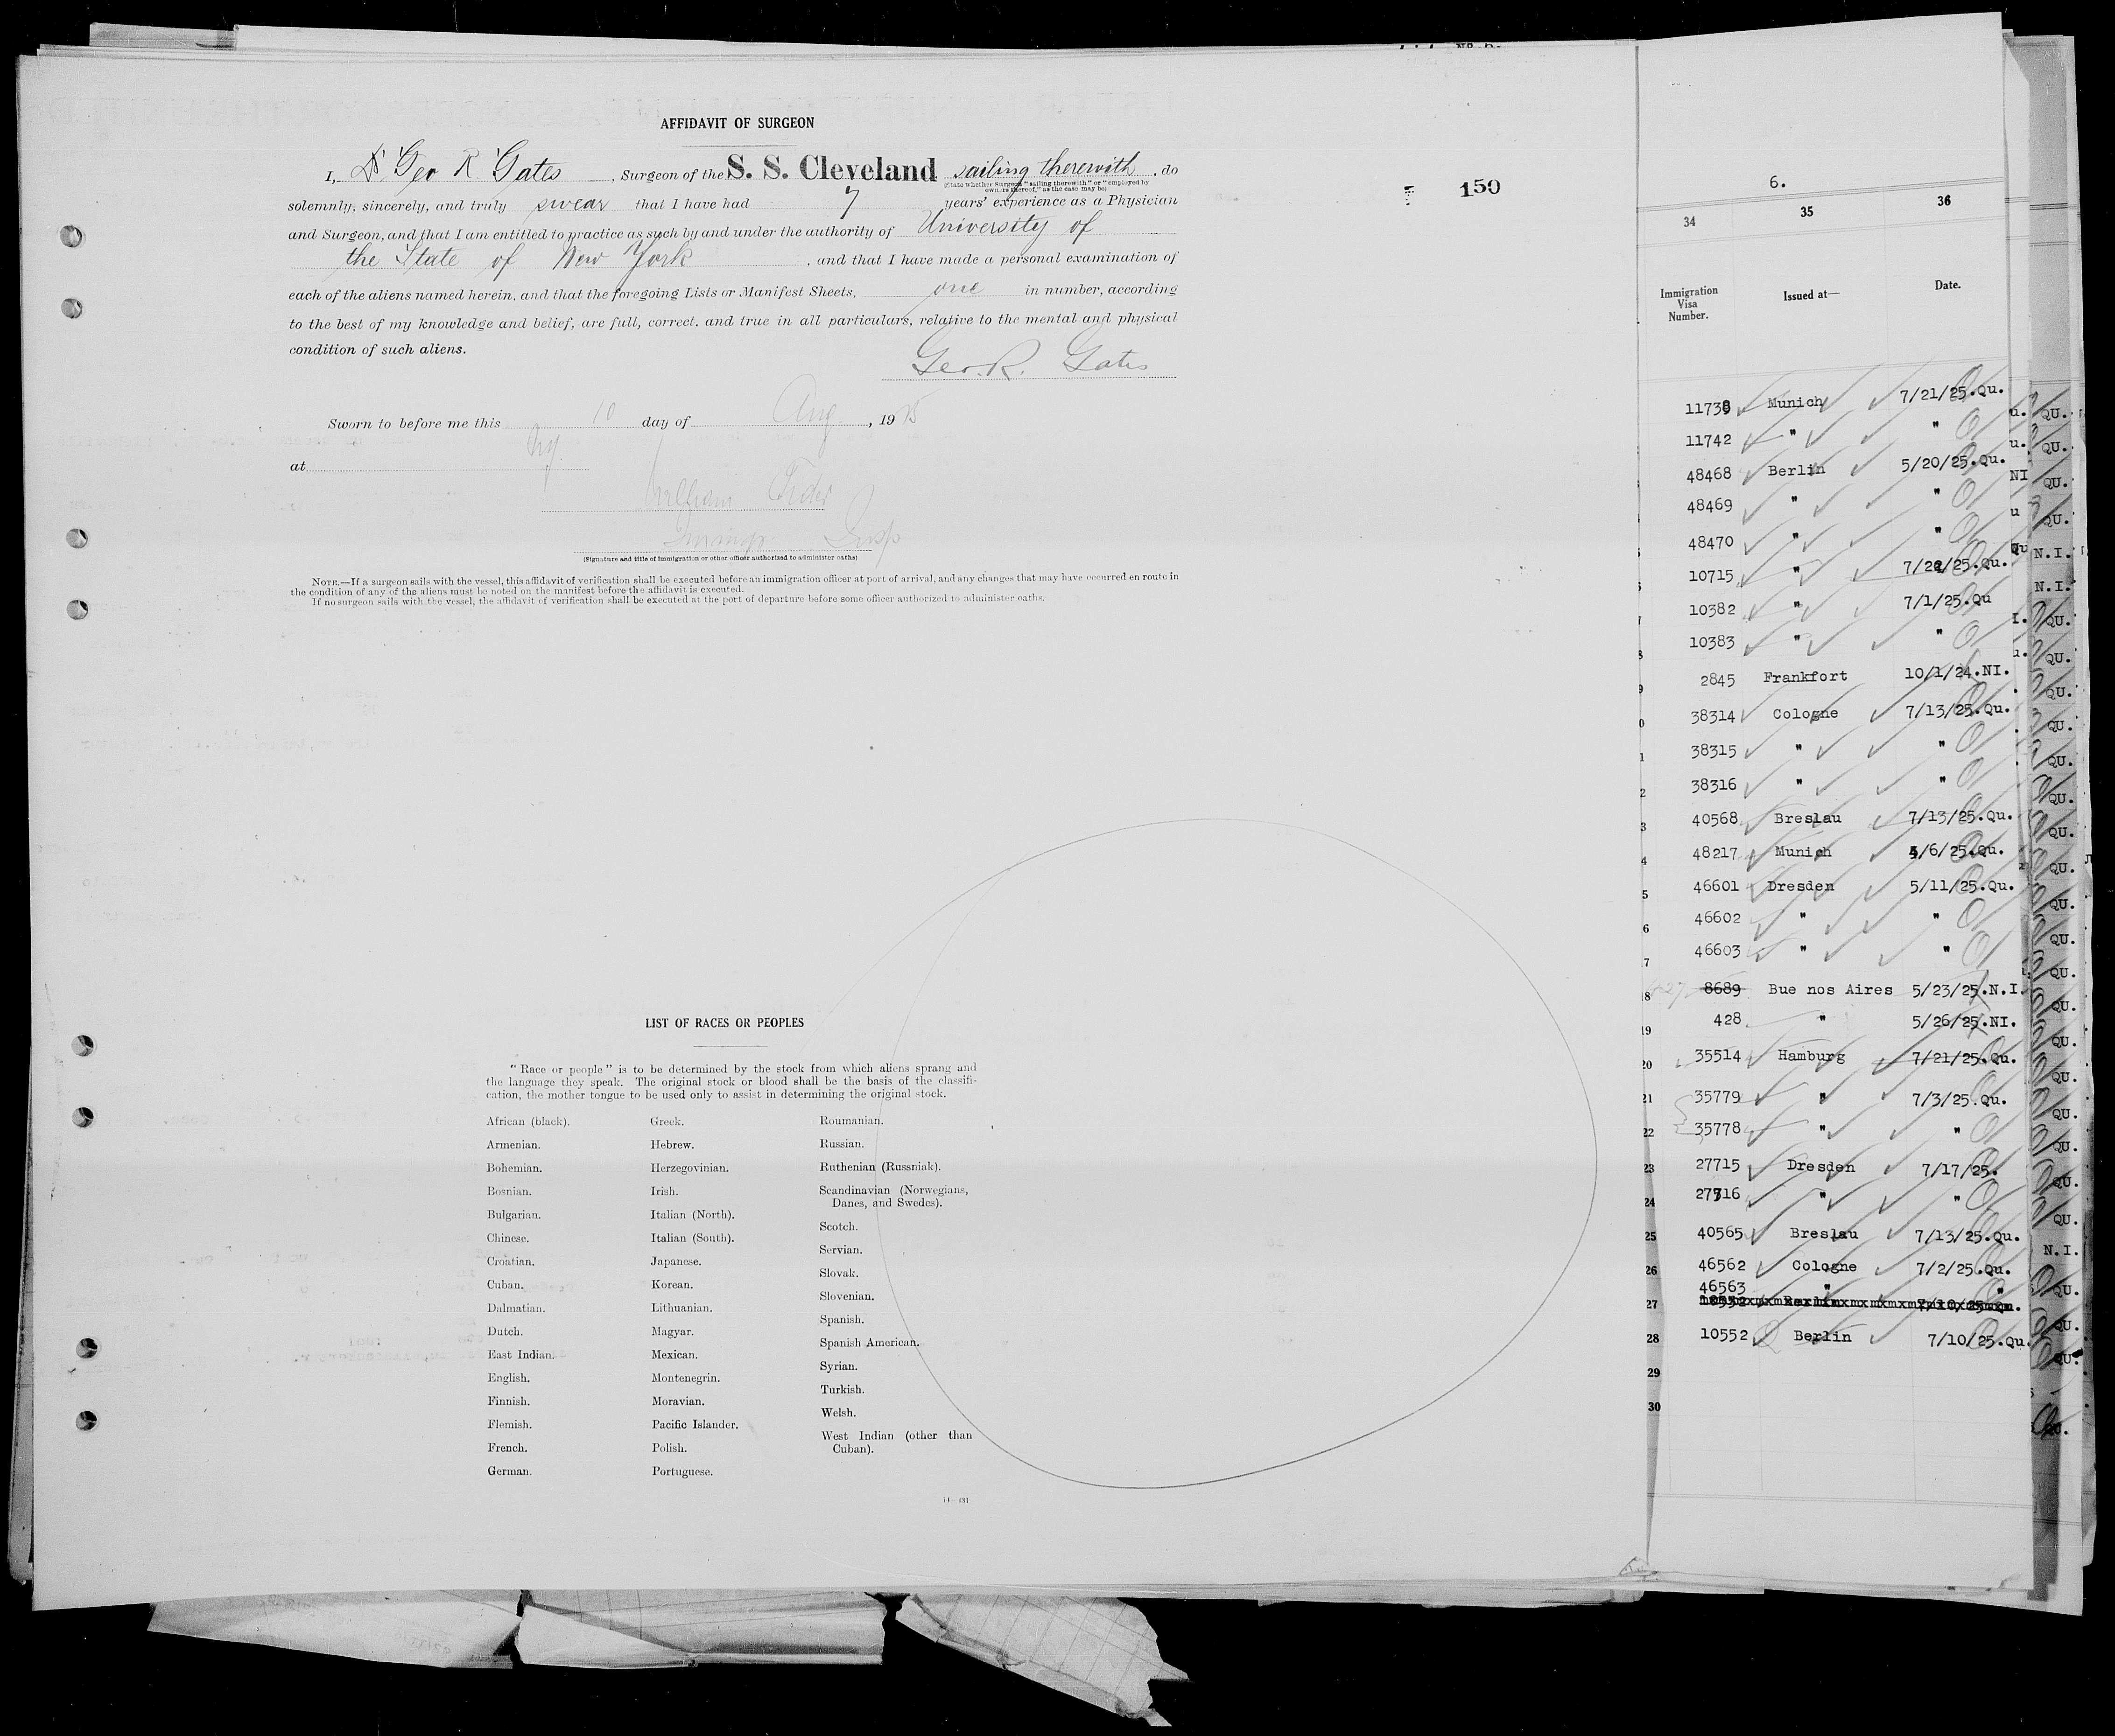 AFFIDAVIT OF SURGEON
I, Dr Geo R Gates, Surgeon of the S. S. Cleveland sailing therewith, do
(State whether Surgeon "sailing therewith" or "employed by
owners thereof," as the case may be)
solemnly, sincerely, and truly swear that I have had 7 years' experience as a Physician
and Surgeon, and that I am entitled to practice as such by and under the authority of University of
the State of New York, and that I have made a personal examination of
each of the aliens named herein, and that the foregoing Lists or Manifest Sheets, one in number, according
to the best of my knowledge and belief, are full, correct, and true in all particulars, relative to the mental and physical
condition of such aliens.
Geo. R. Gates
Sworn to before me this 10 day of Aug, 1925
at NY.
William
Immigr. Insp
(Signature and title of immigration or other officer authorized to administer oaths)
NOTE.—If a surgeon sails with the vessel, this affidavit of verification shall be executed before an immigration officer at port of arrival, and any changes that may have occurred en route in
the condition of any of the aliens must be noted on the manifest before the affidavit is executed.
If no surgeon sails with the vessel, the affidavit of verification shall be executed at the port of departure before some officer authorized to administer oaths.
150
LIST OF RACES OR PEOPLES
"Race or people" is to be determined by the stock from which aliens sprang and
the language they speak. The original stock or blood shall be the basis of the classifi-
cation, the mother tongue to be used only to assist in determining the original stock.
African (black).
Armenian.
Bohemian.
Bosnian.
Bulgarian.
Chinese.
Croatian.
Cuban.
Dalmatian.
Dutch.
East Indian.
English.
Finnish.
Flemish.
French.
German.
Greek.
Hebrew.
Herzegovinian.
Irish.
Italian (North).
Italian (South).
Japanese.
Korean.
Lithuanian.
Magyar.
Mexican.
Montenegrin.
Moravian.
Pacific Islander.
Polish.
Portuguese.
Roumanian.
Russian.
Ruthenian (Russniak).
Scandinavian (Norwegians,
Danes, and Swedes).
Scotch.
Servian.
Slovak.
Slovenian.
Spanish.
Spanish American.
Syrian.
Turkish.
Welsh.
West Indian (other than
Cuban).
6.
34 35 36
Immigration
Visa
Number.
Issued at—
Date.
11738 Munich 7/21/25.Qu.
11742 " "
48468 Berlin 5/20/25.Qu.
48469 " "
48470 " "
10715 " 7/22/25.Qu.
10382 " 7/1/25.Qu
10383 " "
2845 Frankfort 10/1/24.NI.
38314 Cologne 7/13/25.Qu.
38315 " "
38316 " "
40568 Breslau 7/13/25.Qu.
48217 Munich /6/25.Qu.
46601 Dresden 5/11/25.Qu.
46602 " "
46603 " "
18 8689 Bue nos Aires 5/23/25.N.I.
19 428 " 5/26/25.NI.
20 35514 Hamburg 7/21/25.Qu.
21 35779 " 7/3/25.Qu.
22 35778 " "
23 27715 Dresden 7/17/25.
24 27716 " "
25 40565 Breslau 7/13/25.Qu.
26 46562 Cologne 7/2/25.Qu.
46563 " "
27
28 10552 Berlin 7/10/25.Qu.
29
30